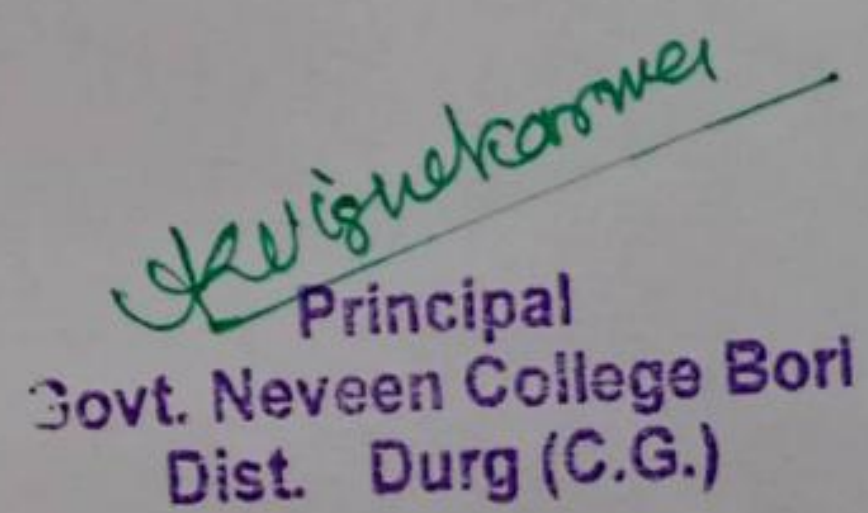 Principal
Govt. Neveen College Bori
Dist. Durg (C.G.)